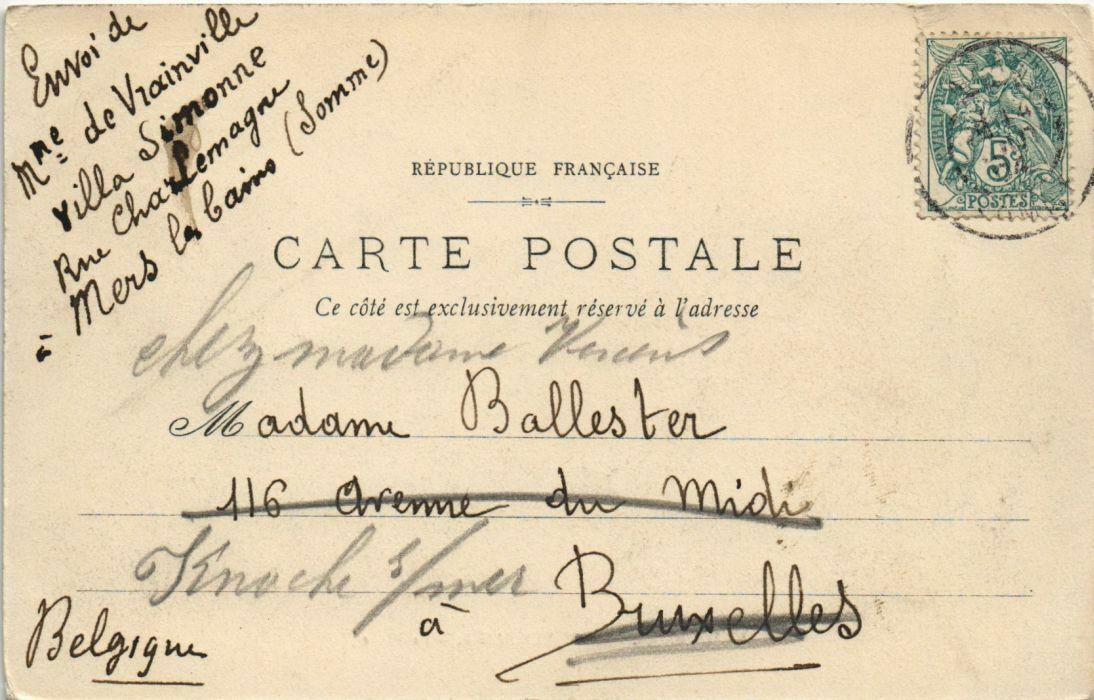 Envoi de
Mme de Vrainville
Villa Simonne
Rue Charlemagne
à Mers les bains (Somme)
RÉPUBLIQUE FRANÇAISE
5
POSTES
CARTE POSTALE
Ce côté est exclusivement réservé à l'adresse
chez madame
Madame Ballester
116 Avenue du Midi
Knocke s/mer
à Bruxelles
Belgique